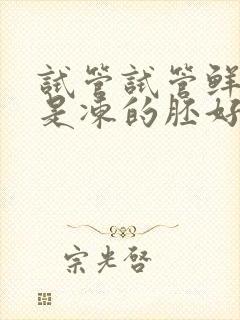 試管試管鮮
是凍的胚好
宗光啓